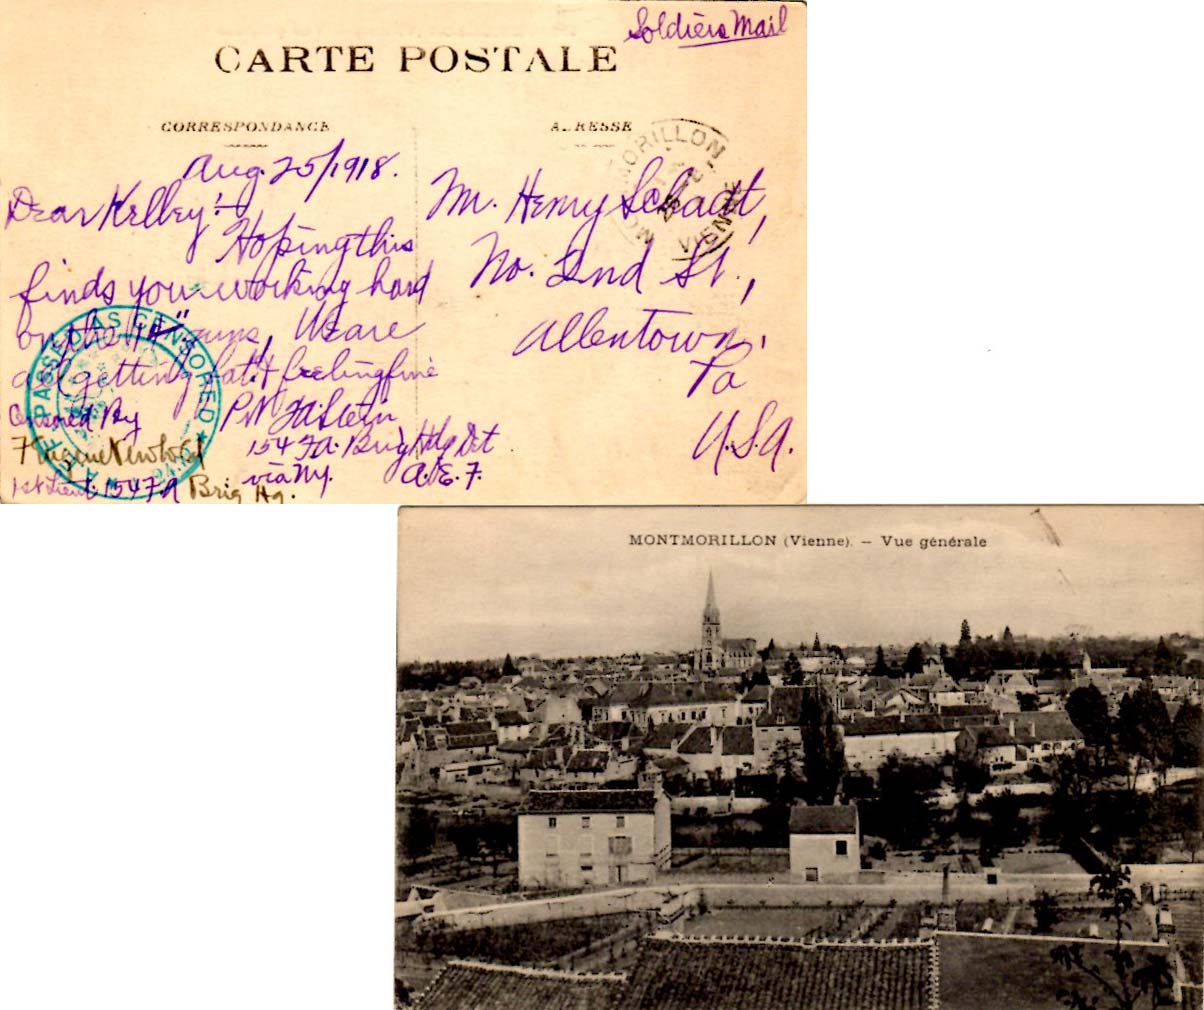 Soldiers Mail
CARTE POSTALE
CORRESPONDANCE
ADRESSE
MONTMORILLON
VIENNE
Aug. 25/1918.
Dear Kelley!
Hoping this
finds you working hard
on the guns, We are
all getting fat & feeling fine
Censored By
Eugene
1st Lieut. 154 FA Brig Hq.
154 F.A. Brig Hdq Det
via N.Y. A.E.F.
PASSED AS CENSORED
A.E.F.
Mr. Henry Schadt,
No. 2nd St.,
Allentown,
Pa
U.S.A.
MONTMORILLON (Vienne). — Vue générale